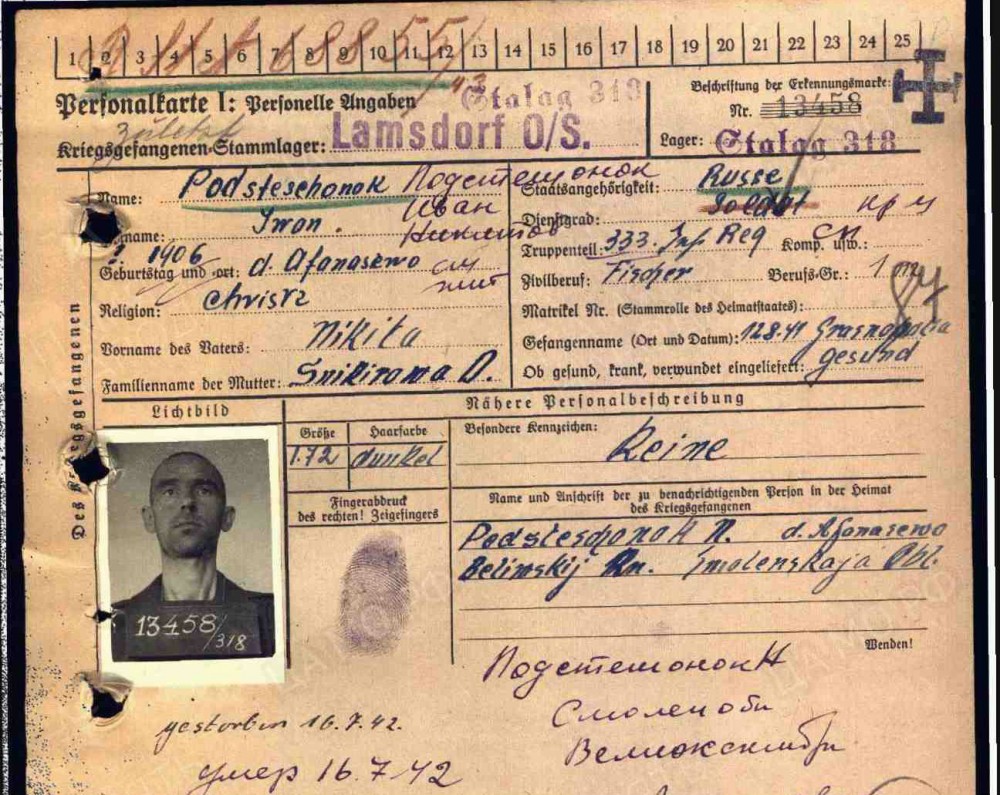 1 2 3 4 5 6 7 8 9 10 11 12 13 14 15 16 17 18 19 20 21 22 23 24 25
Personalkarte I: Personelle Angaben
Stalag 318
Beschriftung der Erkennungsmarke:
Nr. 13458
zuletzt
Kriegsgefangenen-Stammlager: Lamsdorf O/S.
Lager: Stalag 318
Des Kriegsgefangenen
Name: Podsteschonok Подстешонок
Иван
Staatsangehörigkeit: Russe
Vorname: Iwon.
Dienstgrad: Soldat
Truppenteil: 333. Inf Reg Komp. usw.:
Geburtstag und -ort: ? 1906 d. Afanasewo
Zivilberuf: Fischer Berufs-Gr.: 1
Religion: Christ
Matrikel Nr. (Stammrolle des Heimatstaates):
Vorname des Vaters: Nikita
Gefangenname (Ort und Datum): 12.8.41
Familienname der Mutter: Snikirowa O.
Ob gesund, krank, verwundet eingeliefert: gesund
Lichtbild
Nähere Personalbeschreibung
Größe
1.72
Haarfarbe
dunkel
Besondere Kennzeichen:
Keine
Fingerabdruck
des rechten! Zeigefingers
Name und Anschrift der zu benachrichtigenden Person in der Heimat
des Kriegsgefangenen
Podsteschonok N. d. Afanasewo
Belimskij Rn. Smolenskaja Obl.
13458/318
Wenden!
Подстешонок Н
Смолен обл
gestorben 16.7.42.
умер 16.7.42